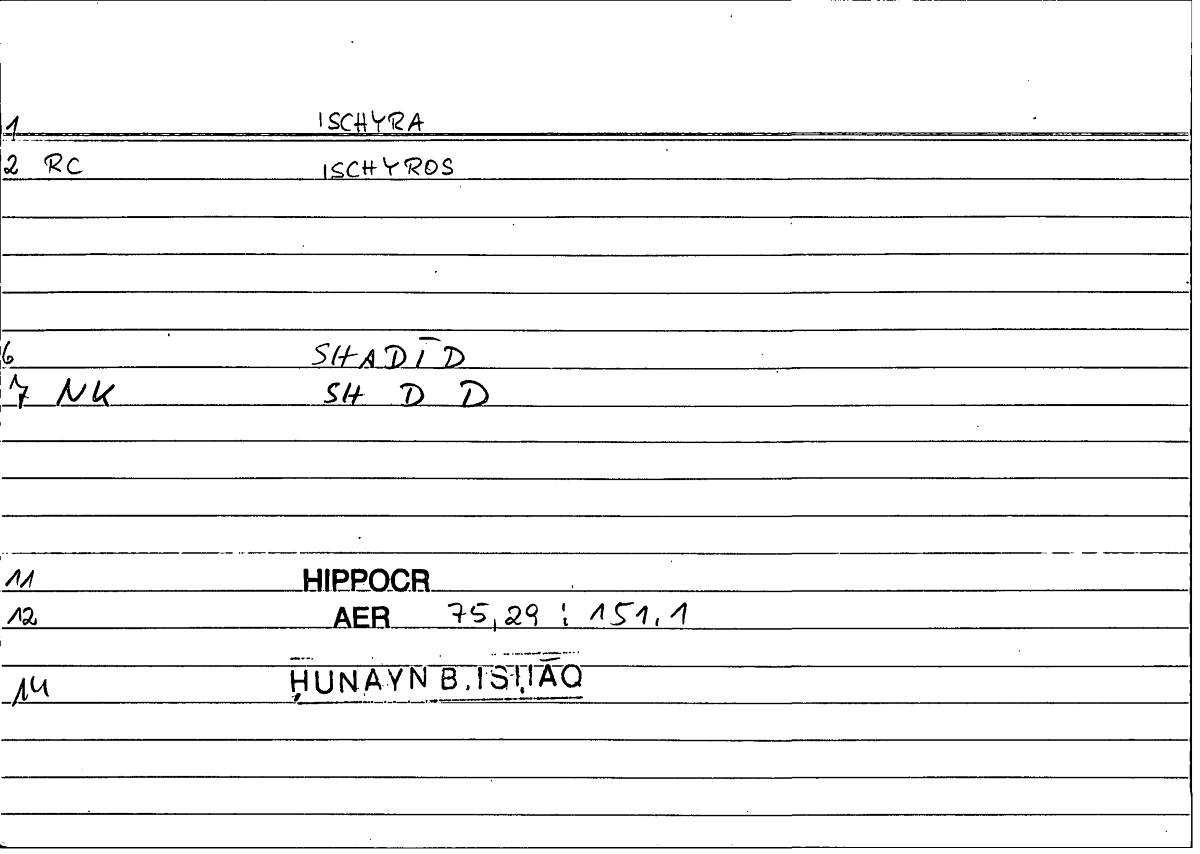 1 ISCHYRA
2 RC ISCHYROS
6 SHADĪD
7 NK SH D D
11 HIPPOCR
12 AER 75,29 ; 151,1
14 ḤUNAYN B. ISḤĀQ